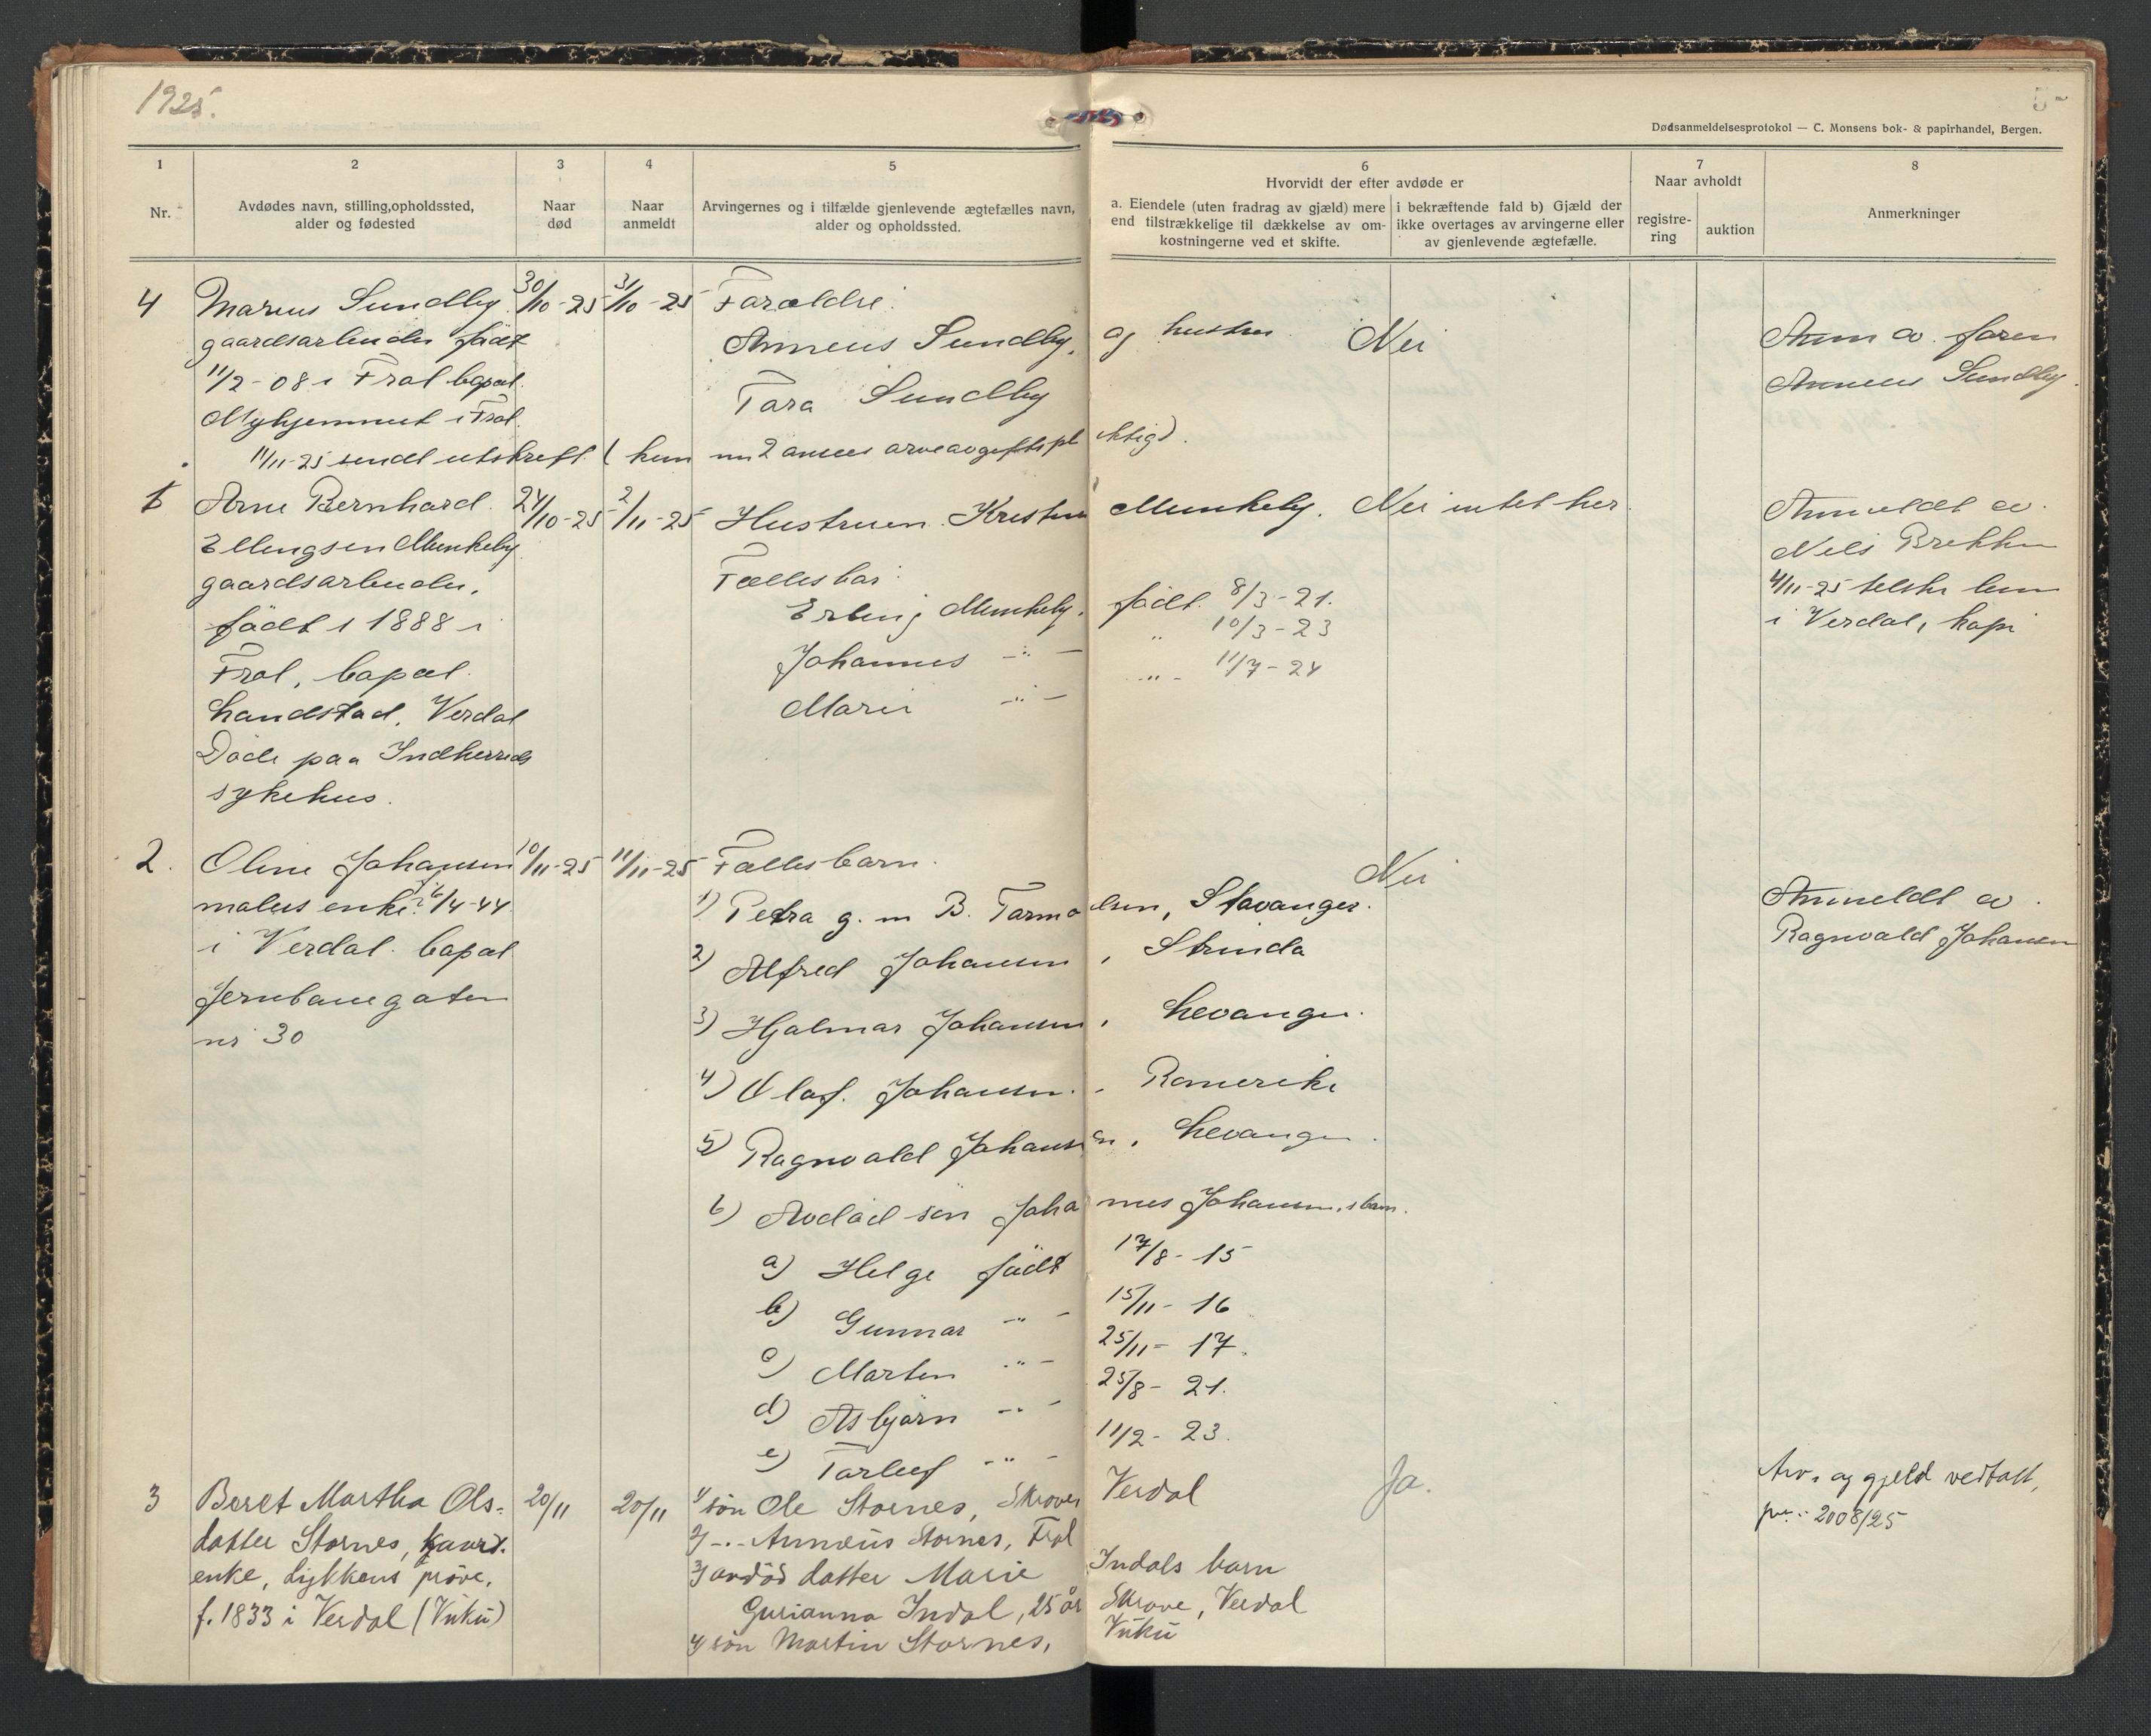 1925.
5-
Dødsanmeldelsesprotokol — C. Monsens bok- & papirhandel, Bergen.
1 2 3 4 5 6 7 8
Nr.
Avdødes navn, stilling, opholdssted,
alder og fødested
Naar
død
Naar
anmeldt
Arvingernes og i tilfælde gjenlevende ægtefælles navn,
alder og opholdssted.
Hvorvidt der efter avdøde er
a. Eiendele (uten fradrag av gjæld) mere
end tilstrækkelige til dækkelse av om-
kostningerne ved et skifte.
i bekræftende fald b) Gjæld der
ikke overtages av arvingerne eller
av gjenlevende ægtefælle.
Naar avholdt
registre-
ring
auktion
Anmerkninger
4 Marius Sundby 30/10-25 31/10-25 Forældre:
gaardsarbeider født Anneus Sundby, og hustru Nei Anm av faren
11/2-08 i Frol bopæl Anneus Sundby.
Myhjemmet i Frol. Tora Sundby
11/11-25 sendt utskrift (kun nr 2 ansees arveavgiftspliktig).
1 Arne Bernhard 24/10-25 2/11-25 Hustruen Kristine Munkeby. Nei intet her. Anmeldt av
Ellingsen Munkeby Nils Brekken
gaardsarbeider, Fællesbar: 4/11-25 telskr len
født i 1888 i Erling Munkeby. født 8/3-21. i Verdal, kopi
Frol, bopæl Johannes -"- " 10/3-23
Landstad, Verdal Marie -"- -"- 11/7-24
Døde paa Indherreds
sykehus.
2. Oline Johansen 10/11-25 11/11-25 Fællesbarn. Nei
malers enke f. 16/4-44 1) Petra g. m B. Tormolsen, Stavanger. Anmeldt av
i Verdal bopæl 2) Alfred Johansen, Strinda Ragnvald Johansen
Jernbanegaten
nr 30 3) Hjalmar Johansen, Levanger.
4) Olaf Johansen, Romerike
5) Ragnvald Johansen, Levanger.
6) Avdød søn Johannes Johansens barn.
a) Helge født 17/8-15
b) Gunnar -"- 15/11-16
c) Morten -"- 25/11-17.
d) Asbjørn -"- 25/8-21.
e) Torleif -"- 11/2-23.
3 Beret Martha Ols- 20/11 20/11 1) søn Ole Stornes, Skrove, Verdal Ja. Arv og gjeld vedtatt,
datter Stornes, kaard- 2) -"- Annæus Stornes, Frol jnr: 2008/25
enke, Lykkens prøve, 3) avdød datter Marie Indals barn
f. 1833 i Verdal (Vuku) Gurianna Indal, 25 år Skrove, Verdal
4) søn Martin Stornes, Vuku